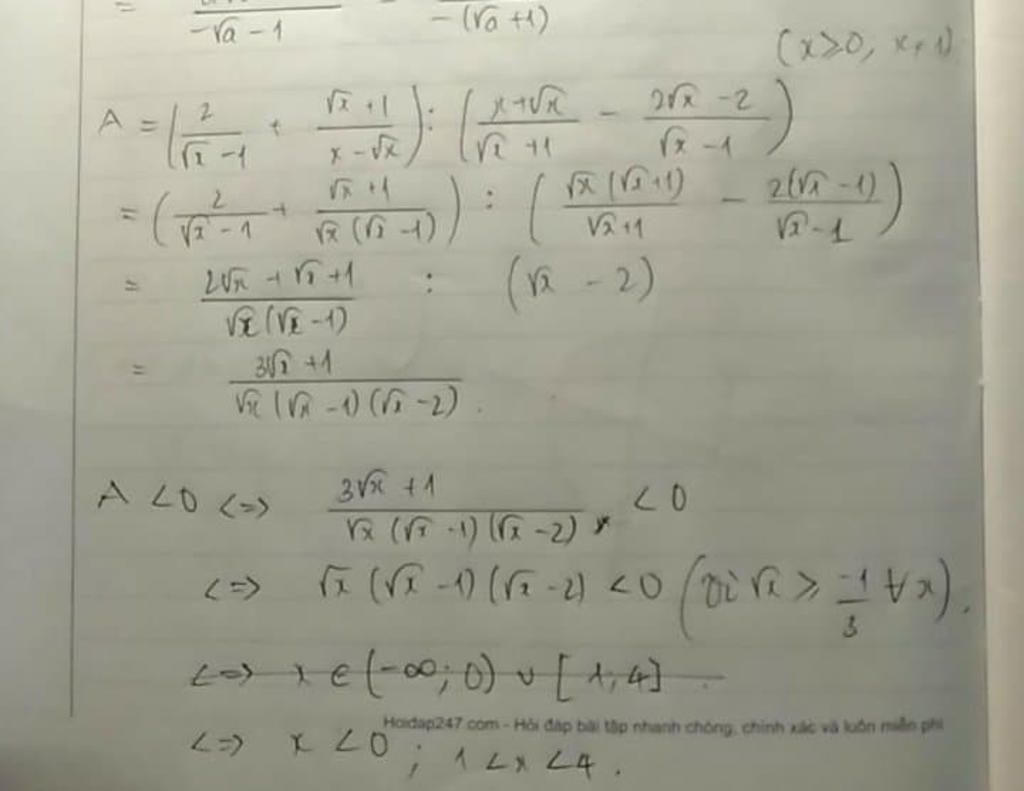 = / (-√a - 1) / (-(√a + 1))
(x ≥ 0, x ≠ 1)
A = (2/(√x - 1) + (√x + 1)/(x - √x)) : ((x + √x)/(√x + 1) - (2√x - 2)/(√x - 1))
= (2/(√x - 1) + (√x + 1)/(√x (√x - 1))) : (√x (√x + 1)/(√x + 1) - 2(√x - 1)/(√x - 1))
= (2√x + √x + 1)/(√x (√x - 1)) : (√x - 2)
= (3√x + 1)/(√x (√x - 1)(√x - 2)).
A < 0 <=> (3√x + 1)/(√x (√x - 1)(√x - 2)) < 0
<=> √x (√x - 1)(√x - 2) < 0 (Vì √x ≥ -1/3 ∀x).
<=> x ∈ (-∞; 0) ∪ [1; 4]
Hoidap247.com - Hỏi đáp bài tập nhanh chóng, chính xác và luôn miễn phí
<=> x < 0 ; 1 < x < 4.